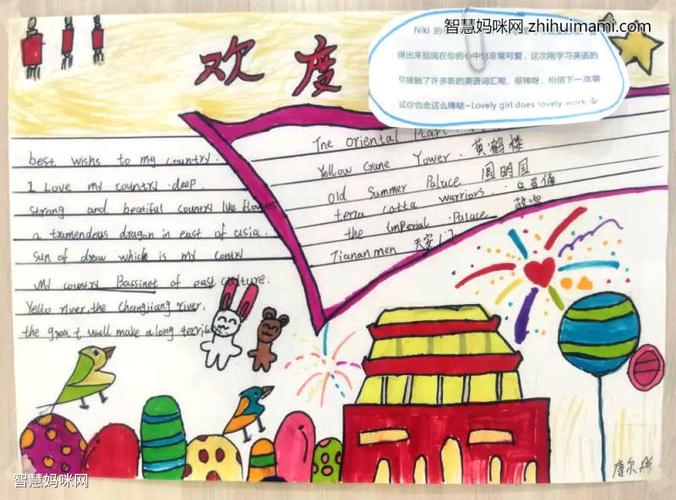 智慧妈咪网 zhihuimami.com
Niki 的
得出来祖国在你的心中也非常可爱，这次刚学习英语的
你接触了许多新的英语词汇呢，很棒呀，相信下一次尝
试你也会这么棒哒~Lovely girl does lovely work
欢度
best wishs to my country.
I Love my country deep.
strong and beatiful country like flower
a tramendous dragon in east of asia.
sun of draw which is my contry
My country Bassinet of east culture.
Yello river, the Changjiang river,
the great wall make a long
The Oriental Pearl
Yellow Crane Tower. 黄鹤楼
Old Summer Palace 圆明园
terra cotta warriors. 兵马俑
the Imperial Palace 故宫
Tiananmen 天安门
智慧妈咪网